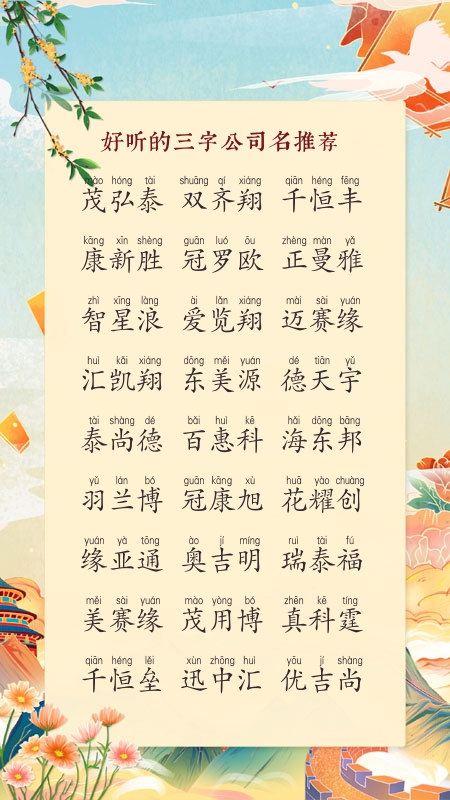 好听的三字公司名推荐
mào hóng tài shuāng qí xiáng qiān héng fēng
茂弘泰 双齐翔 千恒丰
kāng xīn shèng guān luó ōu zhèng màn yǎ
康新胜 冠罗欧 正曼雅
zhì xīng làng ài lǎn xiáng mài sài yuán
智星浪 爱览翔 迈赛缘
huì kǎi xiáng dōng měi yuán dé tiān yǔ
汇凯翔 东美源 德天宇
tài shàng dé bǎi huì kē hǎi dōng bāng
泰尚德 百惠科 海东邦
yǔ lán bó guān kāng xù huā yào chuàng
羽兰博 冠康旭 花耀创
yuán yà tōng ào jí míng ruì tài fú
缘亚通 奥吉明 瑞泰福
měi sài yuán mào yòng bó zhēn kē tíng
美赛缘 茂用博 真科霆
qiān héng lěi xùn zhōng huì yōu jí shàng
千恒垒 迅中汇 优吉尚